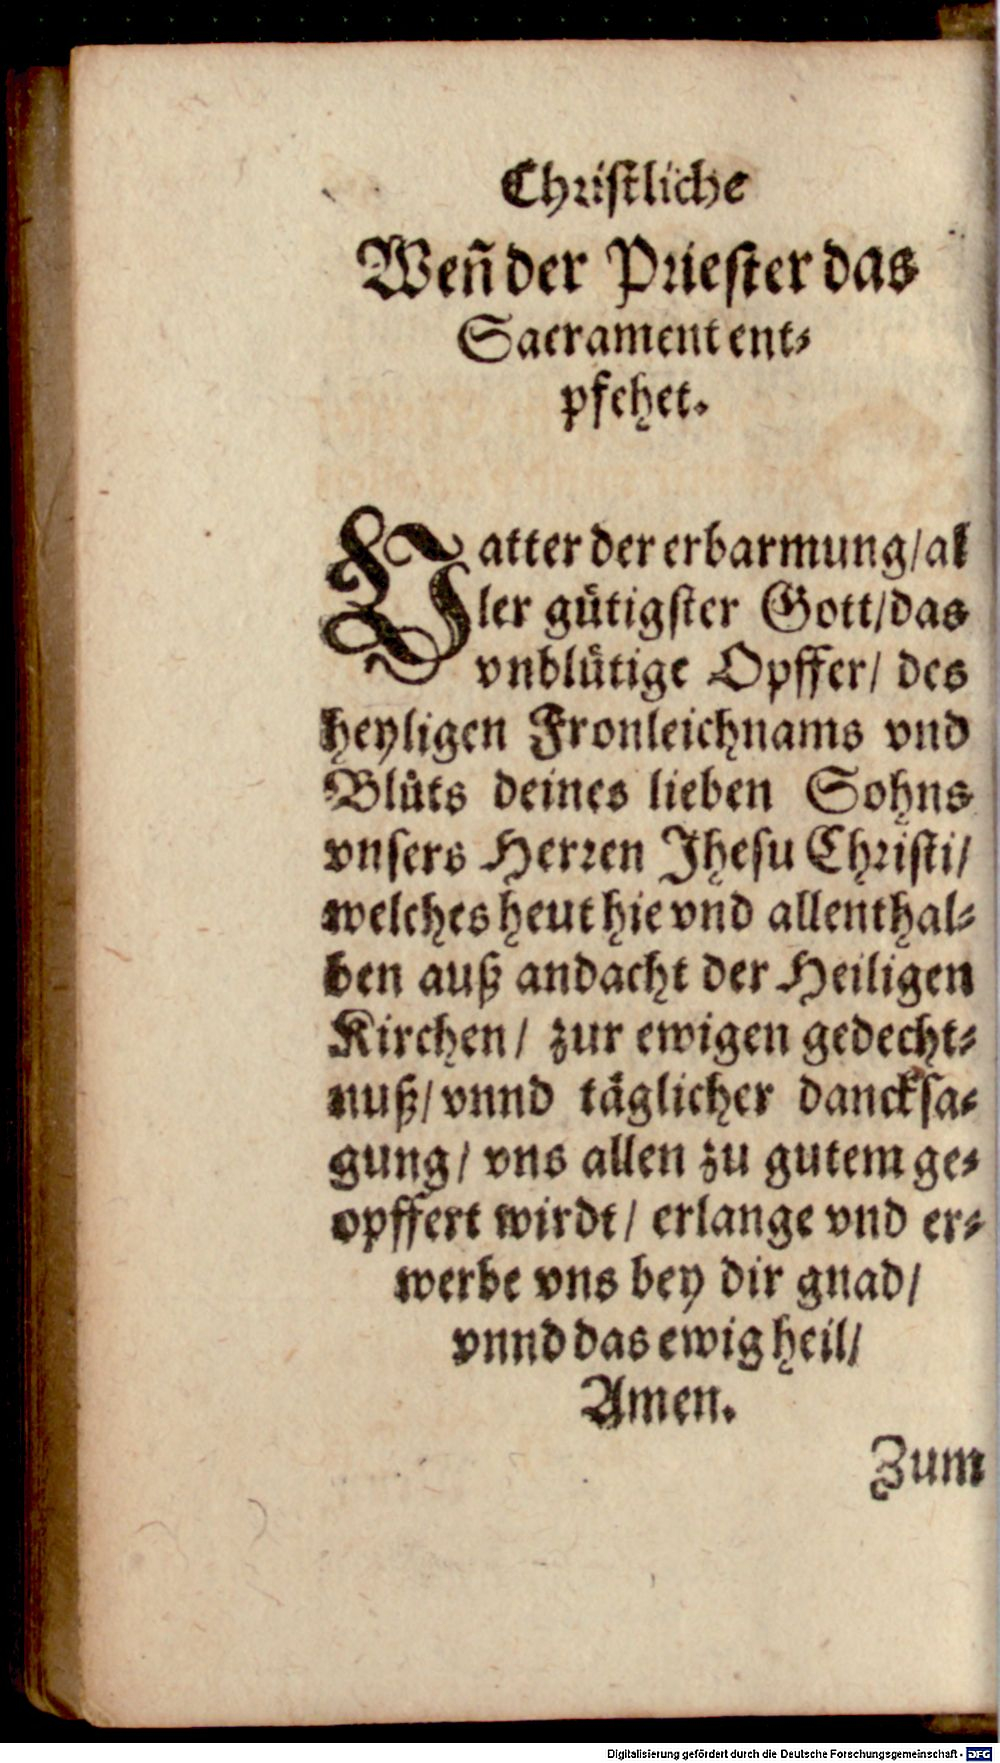 Christliche
Weñ der Priester das
Sacrament ent-
pfehet.
Vatter der erbarmung/al
ler gütigster Gott/das
vnblütige Opffer/ des
heyligen Fronleichnams vnd
Blůts deines lieben Sohns
vnsers Herren Jhesu Christi/
welches heut hie vnd allenthal-
ben auß andacht der Heiligen
Kirchen/ zur ewigen gedecht-
nuß/vnnd täglicher dancksa-
gung/ vns allen zu gutem ge-
opffert wirdt/ erlange vnd er-
werbe vns bey dir gnad/
vnnd das ewig heil/
Amen.
Zum
Digitalisierung gefördert durch die Deutsche Forschungsgemeinschaft - DFG